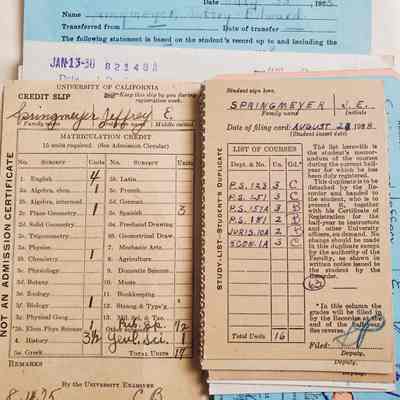 Name Springmeyer, Jeffrey Edward
Transferred from Date of transfer
The following statement is based on the student's record up to and including the
JAN-13-30 821488
UNIVERSITY OF CALIFORNIA
CREDIT SLIP Keep this slip by you during registration week.
Springmeyer Jeffrey E.
Family name Middle initial
MATRICULATION CREDIT
15 units required. (See Admission Circular)
NOT AN ADMISSION CERTIFICATE
No. SUBJECT Units No. SUBJECT Units
1. English 4 5b. Latin
2a. Algebra, elem. 1 5c. French
2b. Algebra, intermed. 5d. German
2c. Plane Geometry 1 5e. Spanish 3
2d. Solid Geometry 6. Freehand Drawing
2e. Trigonometry 6b. Geometrical Draw.
3a. Physics 7. Mechanic Arts
3b. Chemistry 1 8. Agriculture
3c. Physiology 9. Domestic Science
3d. Botany 10. Music
3e. Zoology 11. Bookkeeping
3f. Biology 1 12. Stenog & Type'g
3g. Physical Geog. 13. Mil. Sci. & Tac.
3h. Elem. Phys. Science 1 Pub. Sp. 1/2
4. History 3½ Genl. Sci. 1
5a. Greek TOTAL UNITS 17
REMARKS
By the UNIVERSITY EXAMINER
Student sign here.
SPRINGMEYER J. E.
Family name Initials
Date of filing card AUGUST
(Student insert date)
STUDY-LIST—STUDENT'S DUPLICATE
LIST OF COURSES
Dept. & No. Un. Gd.*
P.S. 125 3 C
P.S. 151 3 C
P.S. 157A 3 B
P.S. 181 2 B
JURIS. 10A 2 B
ECON. 1A 3 C
Total Units 16
The list herewith is the student's memorandum of the courses during the current half-year for which he has been duly registered. This duplicate is to be detached by the Recorder and handed to the student, who is to present it, together with his Certificate of Registration for the half-year to instructors and other University officers, on demand. No change should be made in this duplicate except by the authority of the Faculty, as shown in written notice issued to the student by the Recorder.
* In this column the grades will be filled in by the Recorder at the end of the half-year. See reverse.
Filed:
Deputy,
Deputy.